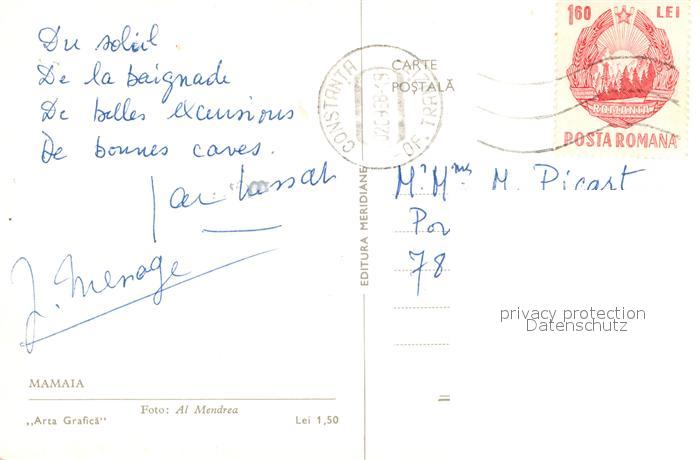 Du soleil
De la baignade
De belles excursions
De bonnes caves.
J. Menage
MAMAIA
Foto: Al Mendrea
„Arta Grafică" Lei 1,50
EDITURA MERIDIANE
CARTE
POŞTALĂ
CONSTANŢA
OF. TRA
1,60 LEI
ROMANIA
POSTA ROMANA
Mr Mme M. Picart
Por
78
privacy protection
Datenschutz